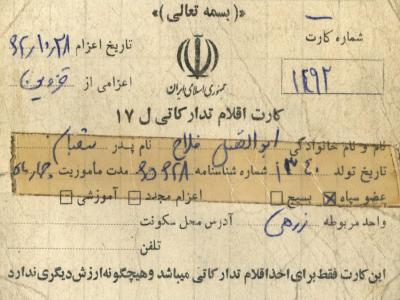 «(بسمه تعالی)»
شماره کارت
۱۲۹۲
جمهوری اسلامی ایران
تاریخ اعزام ۶۲/۱۰/۲۸
اعزامی از قزوین
کارت اقلام تدارکاتی ل ۱۷
نام و نام خانوادگی ابوالفضل فلاح نام پدر شعبان
تاریخ تولد ۱۳۴۰ شماره شناسنامه مدت مأموریت چهار ماه
عضو سپاه بسیج اعزام مجدد آموزشی
واحد مربوطه زرهی آدرس محل سکونت
تلفن
این کارت فقط برای اخذ اقلام تدارکاتی میباشد و هیچگونه ارزش دیگری ندارد